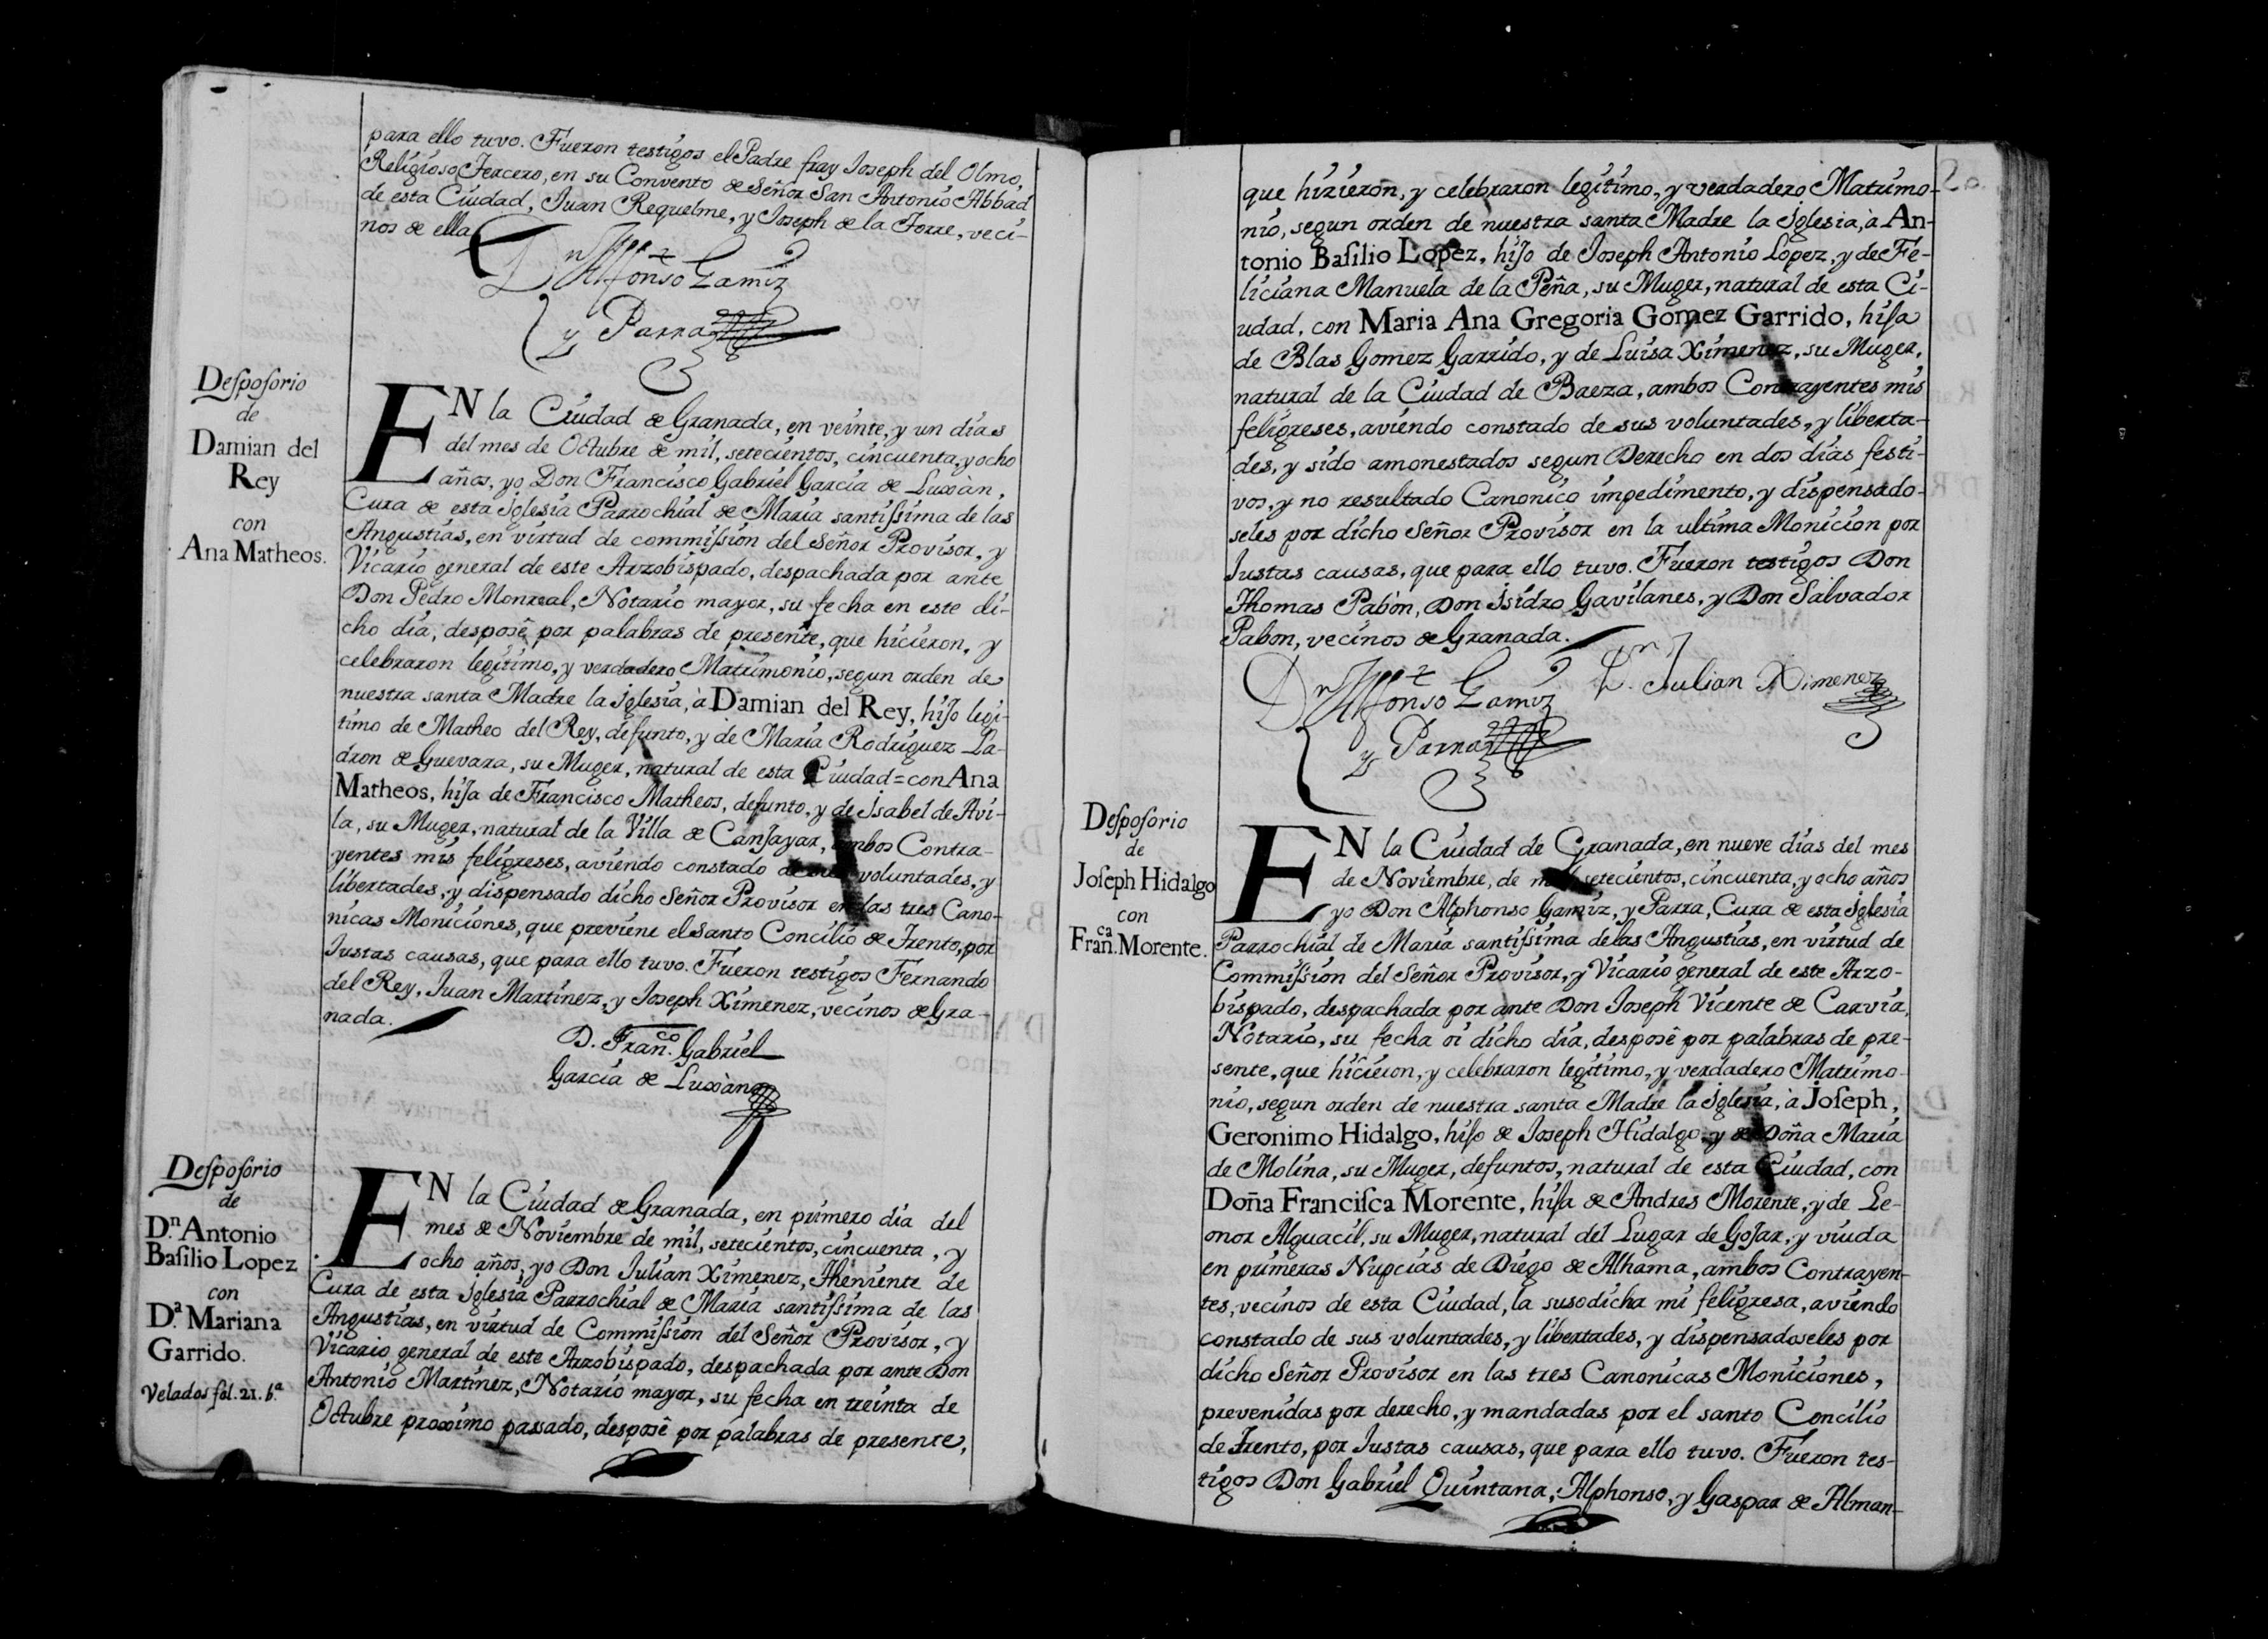 para ello tuvo. Fueron testigos el Padre fray Joseph del Olmo,
Religioso Tercero, en su Convento de Señor San Antonio Abbad
de esta Ciudad, Juan Requelme, y Joseph de la Torre, veci-
nos de ella.
Dn Alfonso Gamiz
y Parra
Desposorio
de
Damian del
Rey
con
Ana Matheos.
EN la Ciudad de Granada, en veinte, y un dias
del mes de Octubre de mil, setecientos, cincuenta, y ocho
años, yo Don Francisco Gabriel Garcia de Luxàn,
Cura de esta Iglesia Parrochial de Maria santissima de las
Angustias, en virtud de commission del Señor Provisor, y
Vicario general de este Arzobispado, despachada por ante
Don Pedro Monreal, Notario mayor, su fecha en este di-
cho dia, desposè por palabras de presente, que hicieron, y
celebraron legitimo, y verdadero Matrimonio, segun orden de
nuestra santa Madre la Iglesia, à Damian del Rey, hijo legi-
timo de Matheo del Rey, defunto, y de Maria Rodriguez La-
dron de Guevara, su Muger, natural de esta Ciudad = con Ana
Matheos, hija de Francisco Matheos, defunto, y de Isabel de Avi-
la, su Muger, natural de la Villa de Canjayar, ambos Contra-
yentes mis feligreses, aviendo constado de sus voluntades, y
libertades, y dispensado dicho Señor Provisor en las tres Cano-
nicas Moniciones, que previene el santo Concilio de Trento, por
Justas causas, que para ello tuvo. Fueron testigos Fernando
del Rey, Juan Martinez, y Joseph Ximenez, vecinos de Gra-
nada.
D. Franco. Gabriel
Garcia de Luxàn
Desposorio
de
Dn. Antonio
Basilio Lopez
con
Da. Mariana
Garrido.
Velados fol. 21. ba
EN la Ciudad de Granada, en primero dia del
mes de Noviembre de mil, setecientos, cincuenta, y
ocho años, yo Don Julian Ximenez, Theniente de
Cura de esta Iglesia Parrochial de Maria santissima de las
Angustias, en virtud de Commission del Señor Provisor, y
Vicario general de este Arzobispado, despachada por ante Don
Antonio Martinez, Notario mayor, su fecha en treinta de
Octubre proximo passado, desposè por palabras de presente,
que hizieron, y celebraron legitimo, y verdadero Matrimo-
nio, segun orden de nuestra santa Madre la Iglesia, à An-
tonio Basilio Lopez, hijo de Joseph Antonio Lopez, y de Fe-
liciana Manuela de la Peña, su Muger, natural de esta Ci-
udad, con Maria Ana Gregoria Gomez Garrido, hija
de Blas Gomez Garrido, y de Luisa Ximenez, su Muger,
natural de la Ciudad de Baeza, ambos Contrayentes mis
feligreses, aviendo constado de sus voluntades, y liberta-
des, y sido amonestados segun Derecho en dos dias festi-
vos, y no resultado Canonico impedimento, y dispensado-
seles por dicho Señor Provisor en la ultima Monicion por
Justas causas, que para ello tuvo. Fueron testigos Don
Thomas Pabòn, Don Isidro Gavilanes, y Don Salvador
Pabon, vecinos de Granada.
Dn Alfonso Gamiz
y Parra
Dn. Julian Ximenez
Desposorio
de
Joseph Hidalgo
con
Franca. Morente.
EN la Ciudad de Granada, en nueve dias del mes
de Noviembre, de mil setecientos, cincuenta, y ocho años
yo Don Alphonso Gamiz, y Parra, Cura de esta Iglesia
Parrochial de Maria santissima de las Angustias, en virtud de
Commission del Señor Provisor, y Vicario general de este Arzo-
bispado, despachada por ante Don Joseph Vicente de Carvia,
Notario, su fecha oi dicho dia, desposè por palabras de pre-
sente, que hicieron, y celebraron legitimo, y verdadero Matrimo-
nio, segun orden de nuestra santa Madre la Iglesia, à Joseph,
Geronimo Hidalgo, hijo de Joseph Hidalgo, y de Doña Maria
de Molina, su Muger, defuntos, natural de esta Ciudad, con
Doña Francisca Morente, hija de Andres Morente, y de Le-
onor Alguacil, su Muger, natural del Lugar de Gojar, y viuda
en primeras Nupcias de Diego de Alhama, ambos Contrayen-
tes, vecinos de esta Ciudad, la susodicha mi feligresa, aviendo
constado de sus voluntades, y libertades, y dispensadoseles por
dicho Señor Provisor en las tres Canonicas Moniciones,
prevenidas por derecho, y mandadas por el santo Concilio
de Trento, por Justas causas, que para ello tuvo. Fueron tes-
tigos Don Gabriel Quintana, Alphonso, y Gaspar de Alman-